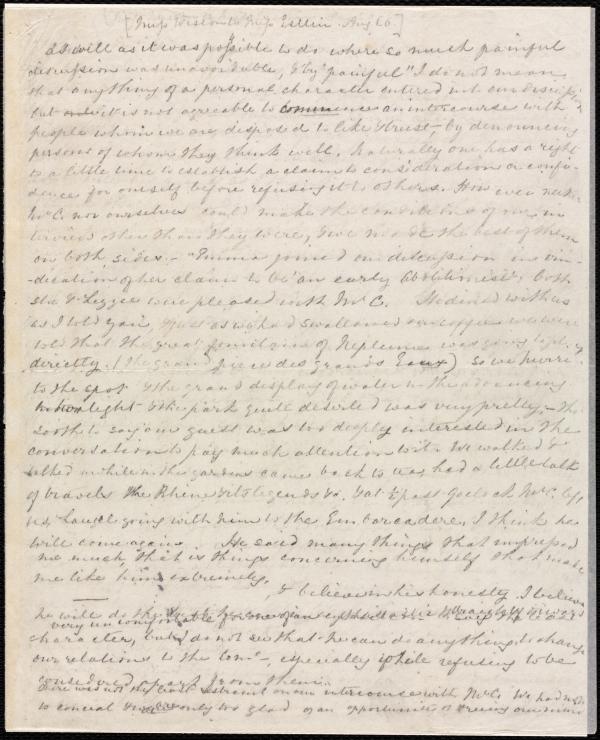 [Miss Wiscombe Miss Estlin. Aug 26.]
as well as it was possible to do where so much painful
discussion was unavoidable, & by "painful" I do not mean
that anything of a personal character entered into our discussion
but it is not agreeable to commence an intercourse with
people whom we are disposed to like & trust by denouncing
persons of whom they think well. Naturally one has a right
to a little time to establish a claim to consideration or confi-
dence for oneself before refusing it to others. However neither
Mr C. nor ourselves could make the conditions of our in
terview other than they were, & we made the best of them
on both sides. Emma joined in discussion in vin-
-dication of her claim to be "an early abolitionist"; both
she & Lizzie were pleased with Mr C. He dined with us
as I told you, & just as we had swallowed our coffee we were
told that the great fountains of Neptune was going to play
directly. (The grand des grands Eaux) so we hurried
to the spot & the grand display of water in the advancing
twilight & the park quite deserted was very pretty. The
sooth to say our guest was too deeply interested in the
conversation to pay much attention to it. We walked &
talked awhile in the gardens came back to tea, had a little talk
of travels the Rhine & its legends &c. & at ½ past 9 o'clock Mr C. left
us, Laugel going with him to the Embarcadere. I think he
will come again. He said many things that impressed
me much, that is things concerning himself that made
me like him extremely.
& I believe in his honesty. I believe
he will do the
very uncomfortable for one of an
character, but I do not see that he can do anything to change
our relations to the Comee, especially while refusing to be
considered apart from them.
There was not the least restraint on our intercourse with Mr C. We had nothing
to conceal & were only too glad of an opportunity of our mind